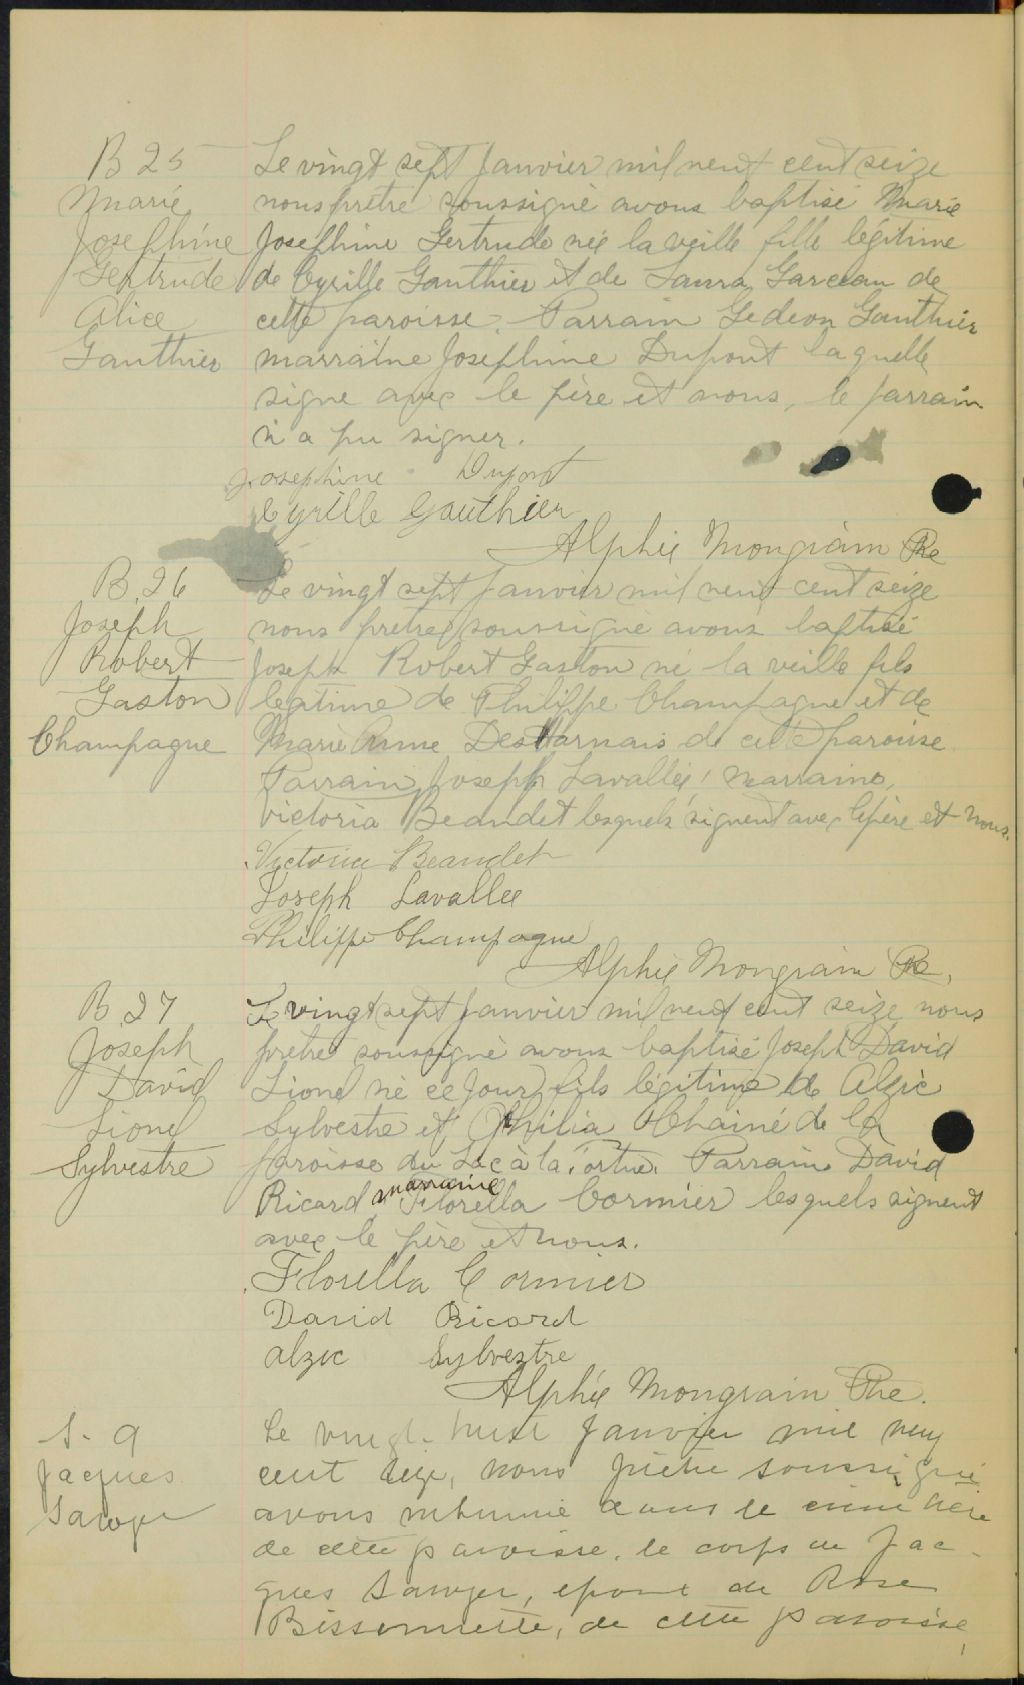 B 25
Marie
Josephine
Gertrude
Alice
Gauthier
Le vingt sept Janvier mil neuf cent seize
nous prêtre soussigné avons baptisé Marie
Josephine Gertrude née la veille fille légitime
de Cyrille Gauthier et de Laura Garceau de
cette paroisse. Parrain Gedeon Gauthier
marraine Josephine Dupont laquelle
signe avec le père et nous, le parrain
n'a pu signer.
Josephine Dupont
Cyrille Gauthier
Alphé Mongrain Ptre
B. 26
Joseph
Robert
Gaston
Champagne
Le vingt sept Janvier mil neuf cent seize
nous prêtre soussigné avons baptisé
Joseph Robert Gaston né la veille fils
legitime de Philippe Champagne et de
Marie Anne Desharnais de cette paroisse
Parrain Joseph Lavallée, marraine,
Victoria Beaudet lesquels signent avec le père et nous.
Victoria Beaudet
Joseph Lavallee
Philippe Champagne
Alphé Mongrain Ptre,
B. 27
Joseph
David
Lionel
Sylvestre
Le vingt sept Janvier mil neuf cent seize nous
prêtre soussigné avons baptisé Joseph David
Lionel né ce Jour fils légitime de Alzic
Sylvestre et Chainé de la
paroisse du Lac à la Tortue. Parrain David
Ricard marraine Florella Cormier lesquels signent
avec le père et nous.
Florella Cormier
David Ricard
Alzic Sylvestre
Alphé Mongrain Ptre.
S. 9
Jacques
Sawyer
Le vingt-huit Janvier mil neuf
cent seize, nous prêtre soussigné
avons inhumé dans le cimetière
de cette paroisse, le corps de Jac-
ques Sawyer, époux de Rose
Bissonnette, de cette paroisse,